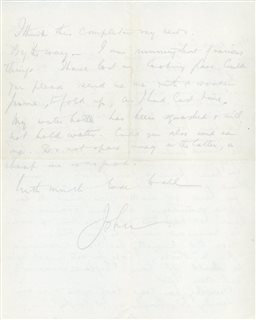 I think this completes my needs.
By the way - I am running short of various
things. I have lost my looking glass. Could
you please send me one with a wooden
frame, to fold up, as I had last time.
My water bottle has been squashed & will
not hold water. Could you also send me
one. Do not spare money on the latter, a
cheap one is no good.
With much love to all
John